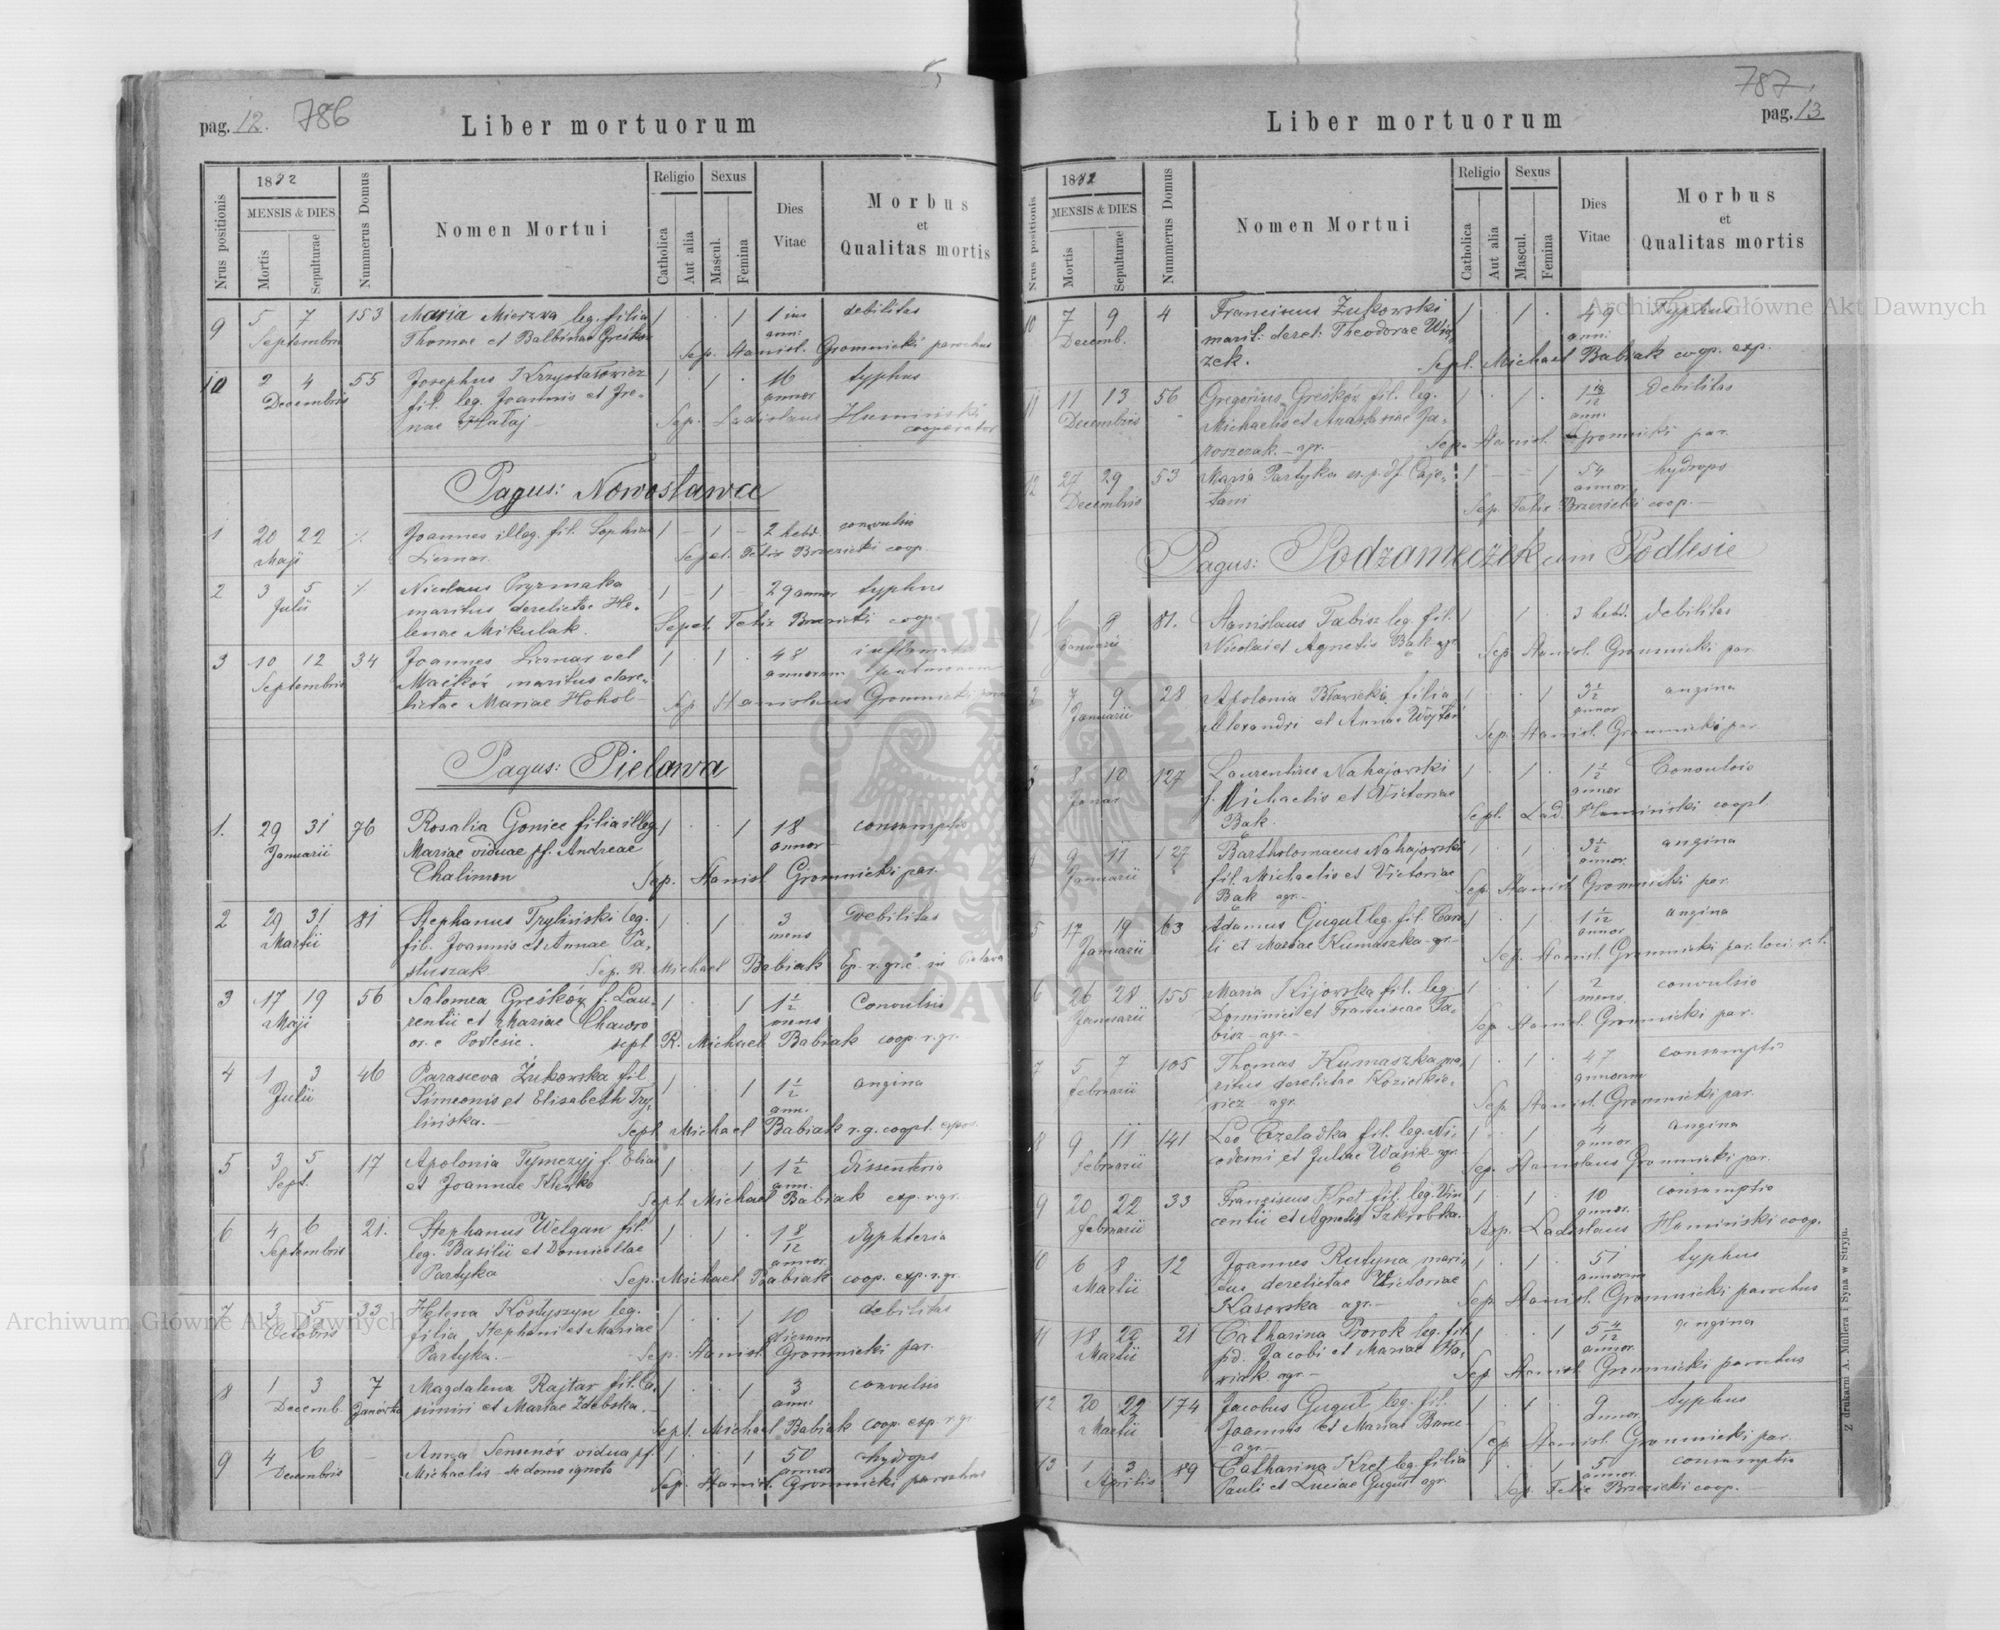 pag. 12. 786
Liber mortuorum
Nrus positionis
1882
MENSIS & DIES
Mortis
Sepulturae
Nummerus Domus
Nomen Mortui
Religio
Catholica
Aut alia
Sexus
Mascul.
Femina
Dies
Vitae
Morbus
et
Qualitas mortis
9 5 7 153 Maria Mierzwa leg. filia 1 1 debilitas
Septembris Thomae et Balbinae
Sep. Stanisl. Gromnicki parochus
10 2 4 55 Josephus Krzyształowicz 1 1 16 typhus
Decembris fil. leg. Joannis et Ire-
annor
nae Hałaj
Sep. Ladislaus Humiński
cooperator
Pagus: Nowostawce
1 20 22 Joannes illeg. fil. Sophiae 1 1 2 hebd. convulsio
Maji
Sepel. Felix Brzezicki coop.
2 3 5 Nicolaus Pryzmaka 1 1 29 annor typhus
Julii maritus derelictae He-
lenae Mikulak.
Sepel. Felix Brzezicki coop.
3 10 12 34 Joannes vel 1 1 48
Septembris maritus dere- annorum
lictae Mariae Hohol
Sep. Stanislaus Gromnicki
Pagus: Pielawa
1. 29 31 76 Rosalia Goniec filia illeg. 1 1 18 consumptio
Januarii Mariae viduae pf. Andreae annor
Chalimon Sep. Stanisl Gromnicki par.
2 29 31 81 Stephanus Tryliński leg. 1 1 3 debilitas
Martii fil. Joannis et Annae Pa- mens
stuszak Sep. R. Michael Babiak in Pielawa
3 17 19 56 Salomea Greśków f. Lau- 1 1 1 1/2 Convulsio
Maji rentii et Mariae Chaworo mens
or. e Podlesie. sepl R. Michael Babiak coop. r. gr.
4 1 3 46 Parasceva Żukowska fil 1 1 1 1/2 angina
Julii Simeonis et Elisabeth Try- ann.
lińska. Sepl Michael Babiak r. g. coopl. expos.
5 3 5 17 Apolonia Tymczyj f. Eliae 1 1 1 1/2 dissenteria
Sept. et Joannae ann.
Sepl. Michael Babiak exp. r. gr.
6 4 6 21. Stephanus Welgan fil. 1 1 1 8/12 dyphteria
Septembris leg. Basilii et Domicellae annor
Partyka Sep. Michael Babiak coop. exp. r. gr.
7 3 5 33 Helena Kostyszyn leg. 1 1 10 debilitas
Octobris filia Stephani et Mariae dierum
Partyka. Sep. Stanisl. Gromnicki par.
8 1 3 7 Magdalena Rajtar fil. Ca- 1 1 3 convulsio
Decemb. Janówka simiri et Mariae Zdebska. ann.
Sepl. Michael Babiak coop. exp. r. gr
9 4 6 Anna Sensenów vidua pf. 1 1 50 hydrops
Decembris Michaelis de domo ignota annor
Sep. Stanisl. Gromnicki parochus
787
pag. 13
Liber mortuorum
Nrus positionis
1882
MENSIS & DIES
Mortis
Sepulturae
Nummerus Domus
Nomen Mortui
Religio
Catholica
Aut alia
Sexus
Mascul.
Femina
Dies
Vitae
Morbus
et
Qualitas mortis
10 7 9 4 Franciscus Żukowski 1 1 49 Typhus
Decemb. marit. derel. Theodorae Wią- ann.
zek. Sepl. Michael Babiak coop. exp.
11 11 13 56 Gregorius Greśków fil. leg. 1 1 1 debilitas
Decembris Michaelis et Anastasiae Ja- ann.
roszczak. agr. Sep. Stanisl. Gromnicki par.
12 27 29 53 Maria Partyka 1 1 54 hydrops
Decembris annor
Sep. Felix Brzezicki coop.
Pagus: Podzameczek cum Podlesie
1 8 81. Stanislaus Tabisz leg. fil. 1 1 3 hebd. debilitas
Januarii Nicolai et Agnetis Bąk agr
Sep. Stanisl. Gromnicki par.
2 7 9 28 Apolonia Bławicka filia 1 1 3 1/2 angina
Januarii Alexandri et Annae annor
Sep. Stanisl. Gromnicki par
3 8 10 127 Laurentius Nahajowski 1 1 1 1/2 Convulsio
Januar f. Michaelis et Victoriae annor
Bąk. Sepl. Lad. Humiński coopl.
4 9 11 127 Bartholomaeus Nahajowski 1 1 3 1/2 angina
Januarii fil. Michaelis et Victoriae annor.
Bąk agr. Sep. Stanisl Gromnicki par.
5 17 19 63 Adamus Gugul leg. fil. Caro- 1 1 1 angina
Januarii li et Mariae Kumaszka agr. annor
Sep. Stanisl. Gromnicki par. loci r. l.
6 26 28 155 Maria Kijowska fil. leg 1 1 2 convulsio
Januarii Dominici et Franciscae Ta- mens.
bisz agr. Sep. Stanisl. Gromnicki par.
7 5 7 105 Thomas Kumaszka ma- 1 1 47 consumptio
Februarii ritus derelictae annorum
agr. Sep. Stanisl. Gromnicki par.
8 9 11 141 Leo Czeladka fil. leg. Ni- 1 1 4 angina
Februarii codemi et Juliae Wąsik agr annor
Sep. Stanislaus Gromnicki par.
9 20 22 33 Franciscus Kret fil. leg. Vin- 1 1 10 consumptio
Februarii centii et Agnetis Szkrobka. annor.
Sep. Ladislaus Humiński coop.
10 6 8 12 Joannes Rutyna mari- 1 1 51 typhus
Martii tus derelictae Victoriae annorum
Kasowska agr. Sep. Stanisl. Gromnicki parochus
11 18 20 21 Catharina Prorok leg. fil 1 1 5 4/12 angina
Martii pd. Jacobi et Mariae annor
agr. Sep. Stanisl Gromnicki parochus
12 20 22 174 Jacobus Gugul leg. fil. 1 1 9 typhus
Martii Joannis et Mariae annor
agr Sep. Stanisl. Gromnicki par.
13 1 3 89 Catharina Kret leg. filia 1 1 5 consumptio
Aprilis Pauli et Luciae Gugul agr. annor.
Sep. Felix Brzezicki coop.
Z drukarni A. Müllera i Syna w Stryju.
Archiwum Główne Akt Dawnych
Archiwum Główne Akt Dawnych
ARCHIWUM GŁÓWNE AKT DAWNYCH